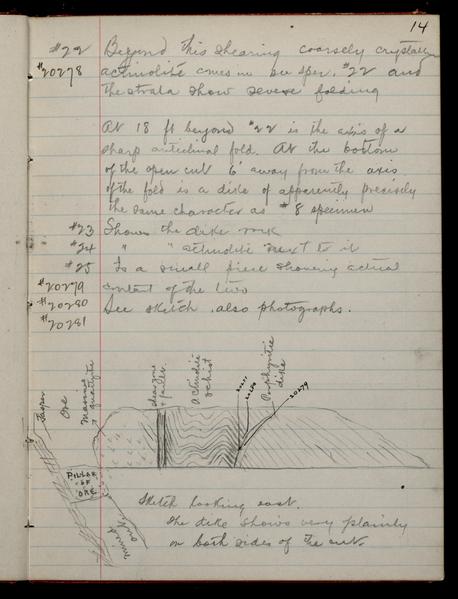 14
#22 Beyond this shearing coarsely crystalline
#20278 actinolite comes in see spec. #22 and
the strata show severe folding
At 18 ft beyond #22 is the axis of a
sharp anticlinal fold. At the bottom
of the open cut 6' away from the axis
of the fold is a dike of apparently precisely
the same character as #8 specimen
#23 Shows the dike rock
#24 " " actinolite next to it
#25 Is a small piece showing actual
#20279 contact of the two
#20280 See sketch, also photographs.
#20281
Jasper
Ore
Massive quartzite
Actinolite schist
Porphyritic dike
20279
PILLAR OF ORE
mined out
Sketch looking east.
The dike shows very plainly
on both sides of the cut.